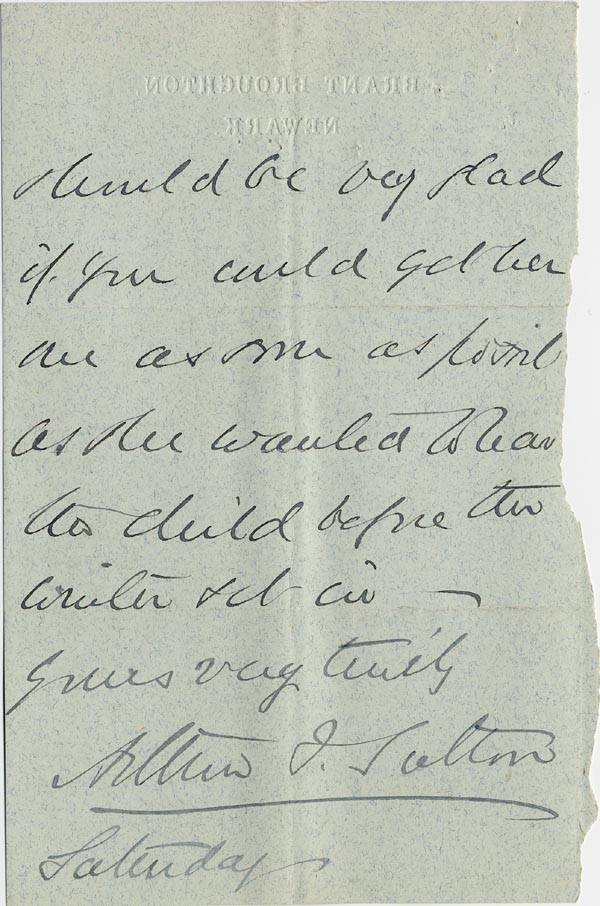 BRANT BROUGHTON,
NEWARK
should be very glad
if you could get her
one as soon as possibl
as she wanted to hav
the child before the
winter set in —
Yours very truly
Arthur F. Sutton
Saturday